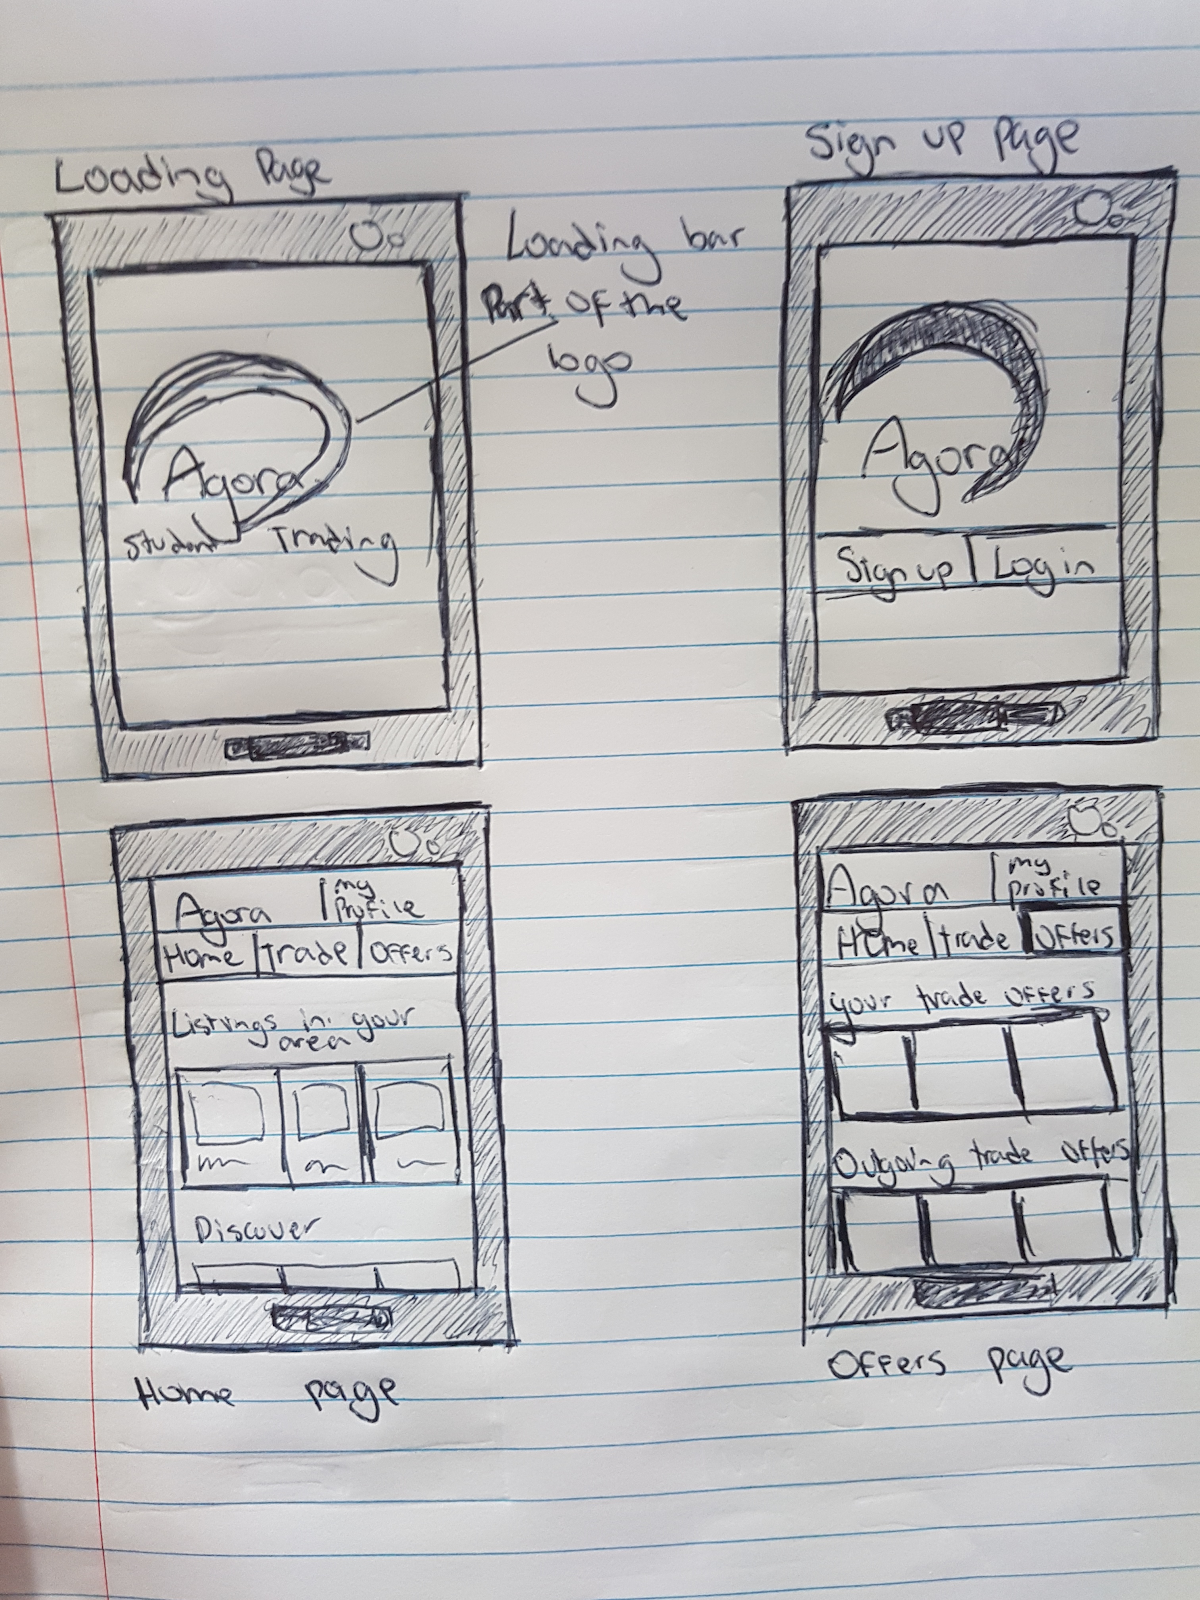 Loading Page
Loading bar
Part of the
logo
Agora
Student Trading
Sign up page
Agora
Sign up Log in
Agora my
Profile
Home Trade Offers
Listings in your
area
Discover
Home page
Agora my
profile
Home trade Offers
your trade offers
Outgoing trade offers
Offers page